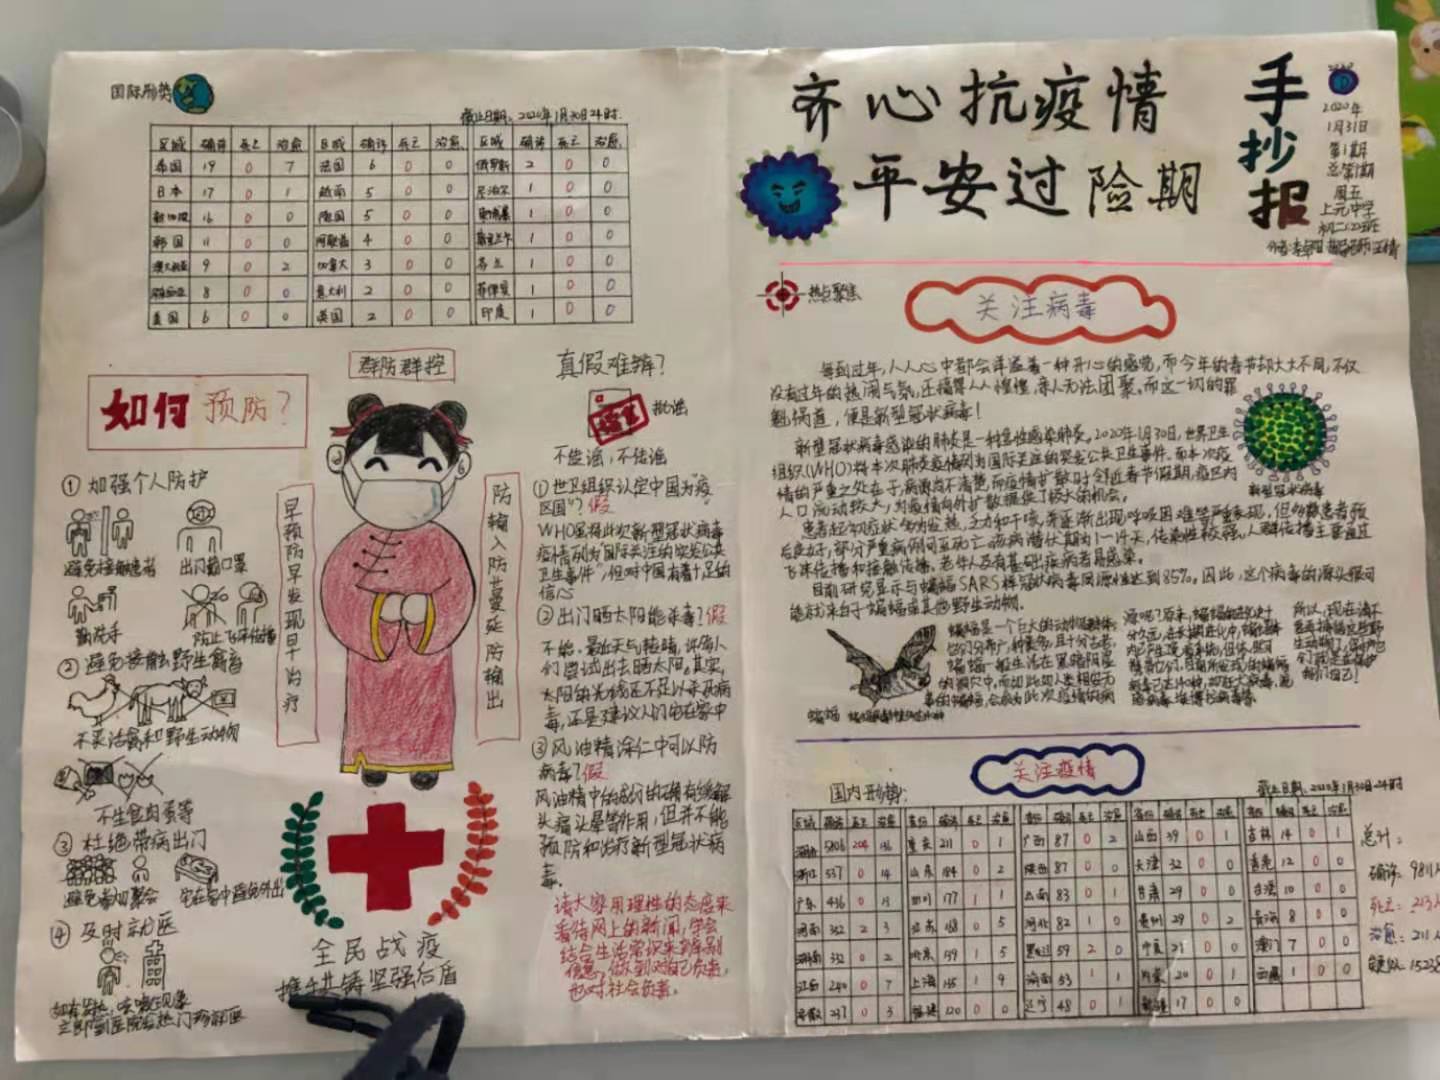 国际形势
截止日期：2020年1月30日24时.
区域 确诊 死亡 治愈 区域 确诊 死亡 治愈 区域 确诊 死亡 治愈
泰国 19 0 7 法国 6 0 0 俄罗斯 2 0 0
日本 17 0 1 越南 5 0 0 尼泊尔 1 0 0
新加坡 16 0 0 德国 5 0 0 柬埔寨 1 0 0
韩国 11 0 0 阿联酋 4 0 0 斯里兰卡 1 0 0
澳大利亚 9 0 2 加拿大 3 0 0 芬兰 1 0 0
马来西亚 8 0 0 意大利 2 0 0 菲律宾 1 0 0
美国 6 0 0 英国 2 0 0 印度 1 0 0
如何预防？
①加强个人防护
避免接触患者
出门戴口罩
勤洗手
防止飞沫传播
②避免接触野生禽畜
不买活禽和野生动物
不生食肉蛋等
③杜绝带病出门
避免者切聚会
宅在家中避免外出
④及时就医
如有发热、咳嗽现象
立即到医院发热门诊就医
群防群控
早预防早发现早治疗
防输入防蔓延防输出
全民战疫
携手共铸坚强后盾
真假难辨？
谣言
批谣
不信谣，不传谣
①世卫组织认定中国为“疫
区国”？假
WHO虽将此次新型冠状病毒
疫情列为“国际关注的突发公共
卫生事件”，但对中国有着十足的
信心
②出门晒太阳能杀毒？假
不能，最近天气较晴，许多人
们尝试出去晒太阳。其实，
太阳的光线还不足以杀死病
毒，还是建议人们宅在家中
③风油精涂仁中可以防
病毒？假
风油精中的成分的确有缓解
头痛头晕等作用，但并不能
预防和治疗新型冠状病
毒。
请大家用理性的态度来
看待网上的新闻，学会
结合生活常识来辨别
信息，做到对自己负责，
也对社会负责。
齐心抗疫情
平安过险期
手抄报
2020年
1月31日
第1期
总第1期
周五
上元中学
初二(2)班
热点聚焦
关注病毒
每到过年，人人心中都会洋溢着一种开心的感觉，而今年的春节却大大不同，不仅
没有过年的热闹气氛，还搞得人人惶惶，亲人无法团聚。而这一切的罪
魁祸首，便是新型冠状病毒！
新型冠状病毒感染的肺炎是一种急性感染肺炎。2020年1月30日，世界卫生
组织(WHO)将本次肺炎疫情列为国际关注的突发公共卫生事件。而本次疫
情的严重之处在于，病源尚不清楚，而疫情扩散时邻近春节假期，疫区内
人口流动较大，为疫情向外扩散提供了极大的机会。
患者起初症状多为发热、乏力和干咳，并逐渐出现呼吸困难等严重表现，但多数患者预
后良好，部分严重病例可至死亡。该病潜伏期为1-14天，传染性较强。人群传播主要通过
飞沫传播和接触传播，老年人及有基础疾病者易感染。
目前研究显示与蝙蝠SARS样冠状病毒同源性达到85%。因此，这个病毒的源头很可
能就来自于蝙蝠或其他野生动物。
新型冠状病毒
蝙蝠
蝙蝠是一个巨大的动物群体
它们分布广，种类多，且十分古老
蝙蝠一般生活在黑暗阴湿
的洞穴中，而如此与人类相安无
事的蝙蝠，会成为此次疫情的病
源呢？原来，蝙蝠的进化史十
所以，现在请不
关注疫情
国内形势：
截止日期：2020年1月30日24时
区域 确诊 死亡 治愈 省份 确诊 死亡 治愈 省份 确诊 死亡 治愈 省份 确诊 死亡 治愈 省份 确诊 死亡 治愈
湖北 5806 204 116 重庆 211 0 1 广西 87 0 2 山西 39 0 1 吉林 14 0 1
浙江 537 0 14 山东 184 0 2 陕西 87 0 0 天津 32 0 0 香港 12 0 0
广东 436 0 11 四川 177 1 1 云南 83 0 1 甘肃 29 0 0 台湾 10 0 0
河南 352 2 3 江苏 168 0 5 河北 82 1 0 贵州 29 0 2 青海 8 0 0
湖南 332 0 2 北京 139 1 5 黑龙江 59 2 0 宁夏 21 0 0 澳门 7 0 0
江西 240 0 7 上海 135 1 9 海南 53 1 1 内蒙 20 0 1 西藏 1 0 0
安徽 237 0 3 福建 120 0 0 辽宁 48 0 1 新疆 17 0 0
总计：
确诊：9811人
死亡：213人
治愈：211人
疑似：15238